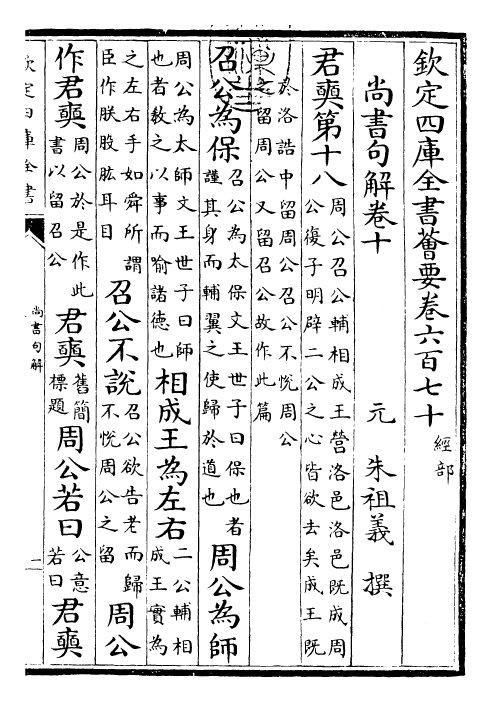 欽定四庫全書薈要卷六百七十 經部
尚書句解卷十 元 朱祖義 撰
君奭第十八 周公召公輔相成王營洛邑洛邑既成周
公復子明辟二公之心皆欲去矣成王既
於洛誥中留周公召公不悅周公
之留周公又留召公故作此篇
召公為保 召公為太保文王世子曰保也者
謹其身而輔翼之使歸於道也 周公為師
周公為太師文王世子曰師
也者教之以事而喻諸德也 相成王為左右 二公輔相
成王實為
之左右手如舜所謂
臣作朕股肱耳目 召公不說 召公欲告老而歸
不悅周公之留 周公
作君奭 周公於是作此
書以留召公 君奭 舊簡
標題 周公若曰 公意
若曰 君奭
欽定四庫全書
尚書句解
一